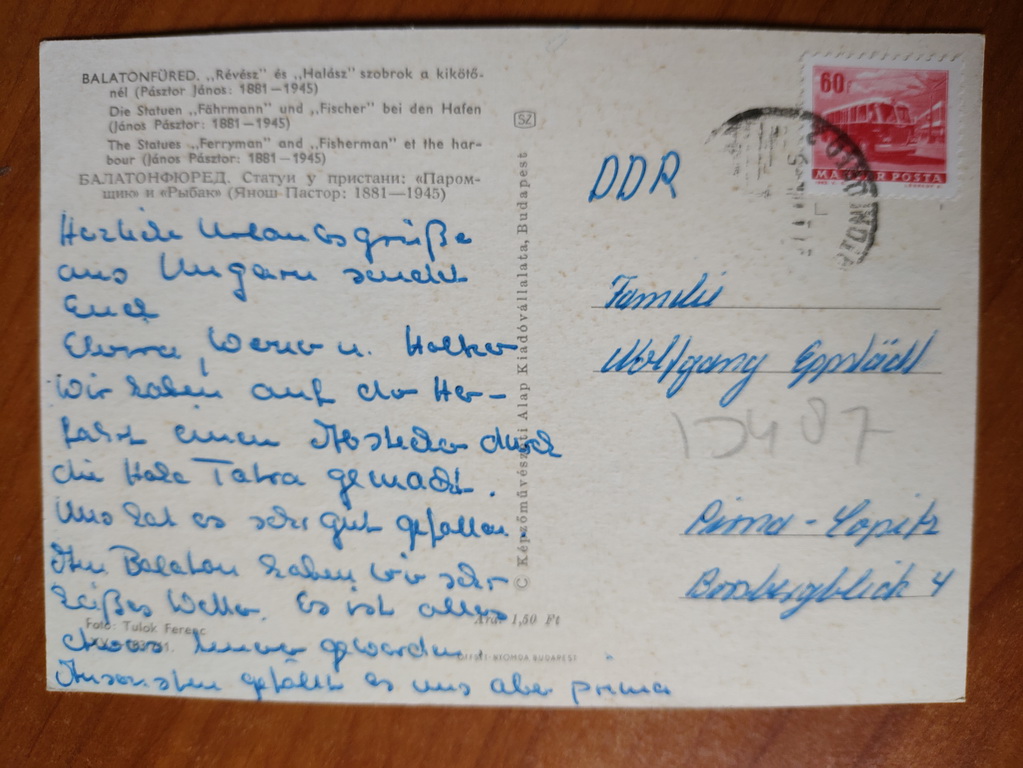 BALATONFÜRED. „Révész" és „Halász" szobrok a kikötő-
nél (Pásztor János: 1881—1945)
Die Statuen „Fährmann" und „Fischer" bei den Hafen
(János Pásztor: 1881—1945)
The Statues „Ferryman" and „Fisherman" et the har-
bour (János Pásztor: 1881—1945)
БАЛАТОНФЮРЕД. Статуи у пристани: «Паром-
щик» и «Рыбак» (Янош Пастор: 1881—1945)
Herzliche Urlaubsgrüße
aus Ungarn sendet
Euch
Werner u.
Wir haben auf der Her-
fahrt einen Abstecher durch
die Hohe Tatra gemacht.
Uns hat es sehr gut gefallen.
Am Balaton haben wir sehr
heißes Wetter. Es ist alles
etwas teurer geworden.
Ansonsten gefällt es uns aber prima
Fotó: Tulok Ferenc
SZ
© Képzőművészeti Alap Kiadóvállalata, Budapest
Ára: 1,50 Ft
OFFSET NYOMDA BUDAPEST
60 f
MAGYAR POSTA
DDR
Familie
Wolfgang Eppstädt
Pirna - Copitz
Borsbergblick 4